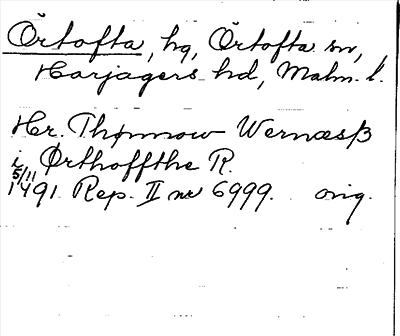 Örtofta, hg, Örtofta sn,
Harjagers hd, Malm. l.
Hr. Thønnow Wernæsß
i Ørthoffthe R.
5/11
1491 Rep. II nr 6999. orig.